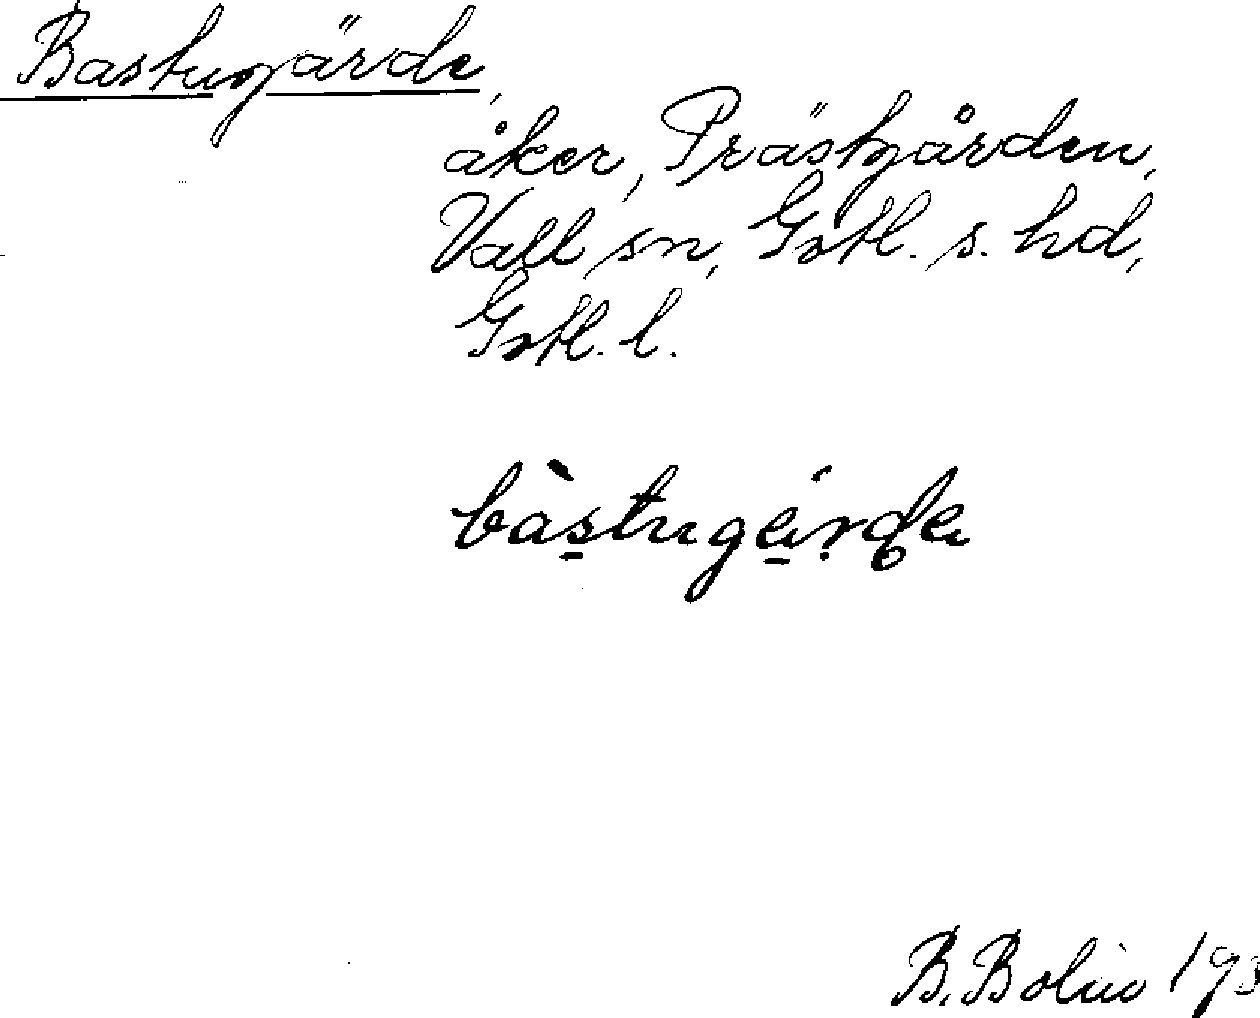 Bastugärde,
åker, Prästgården,
Vall sn, Gotl. s. hd,
Gotl. l.
bàstugęi̇rde
B. Bolin 193